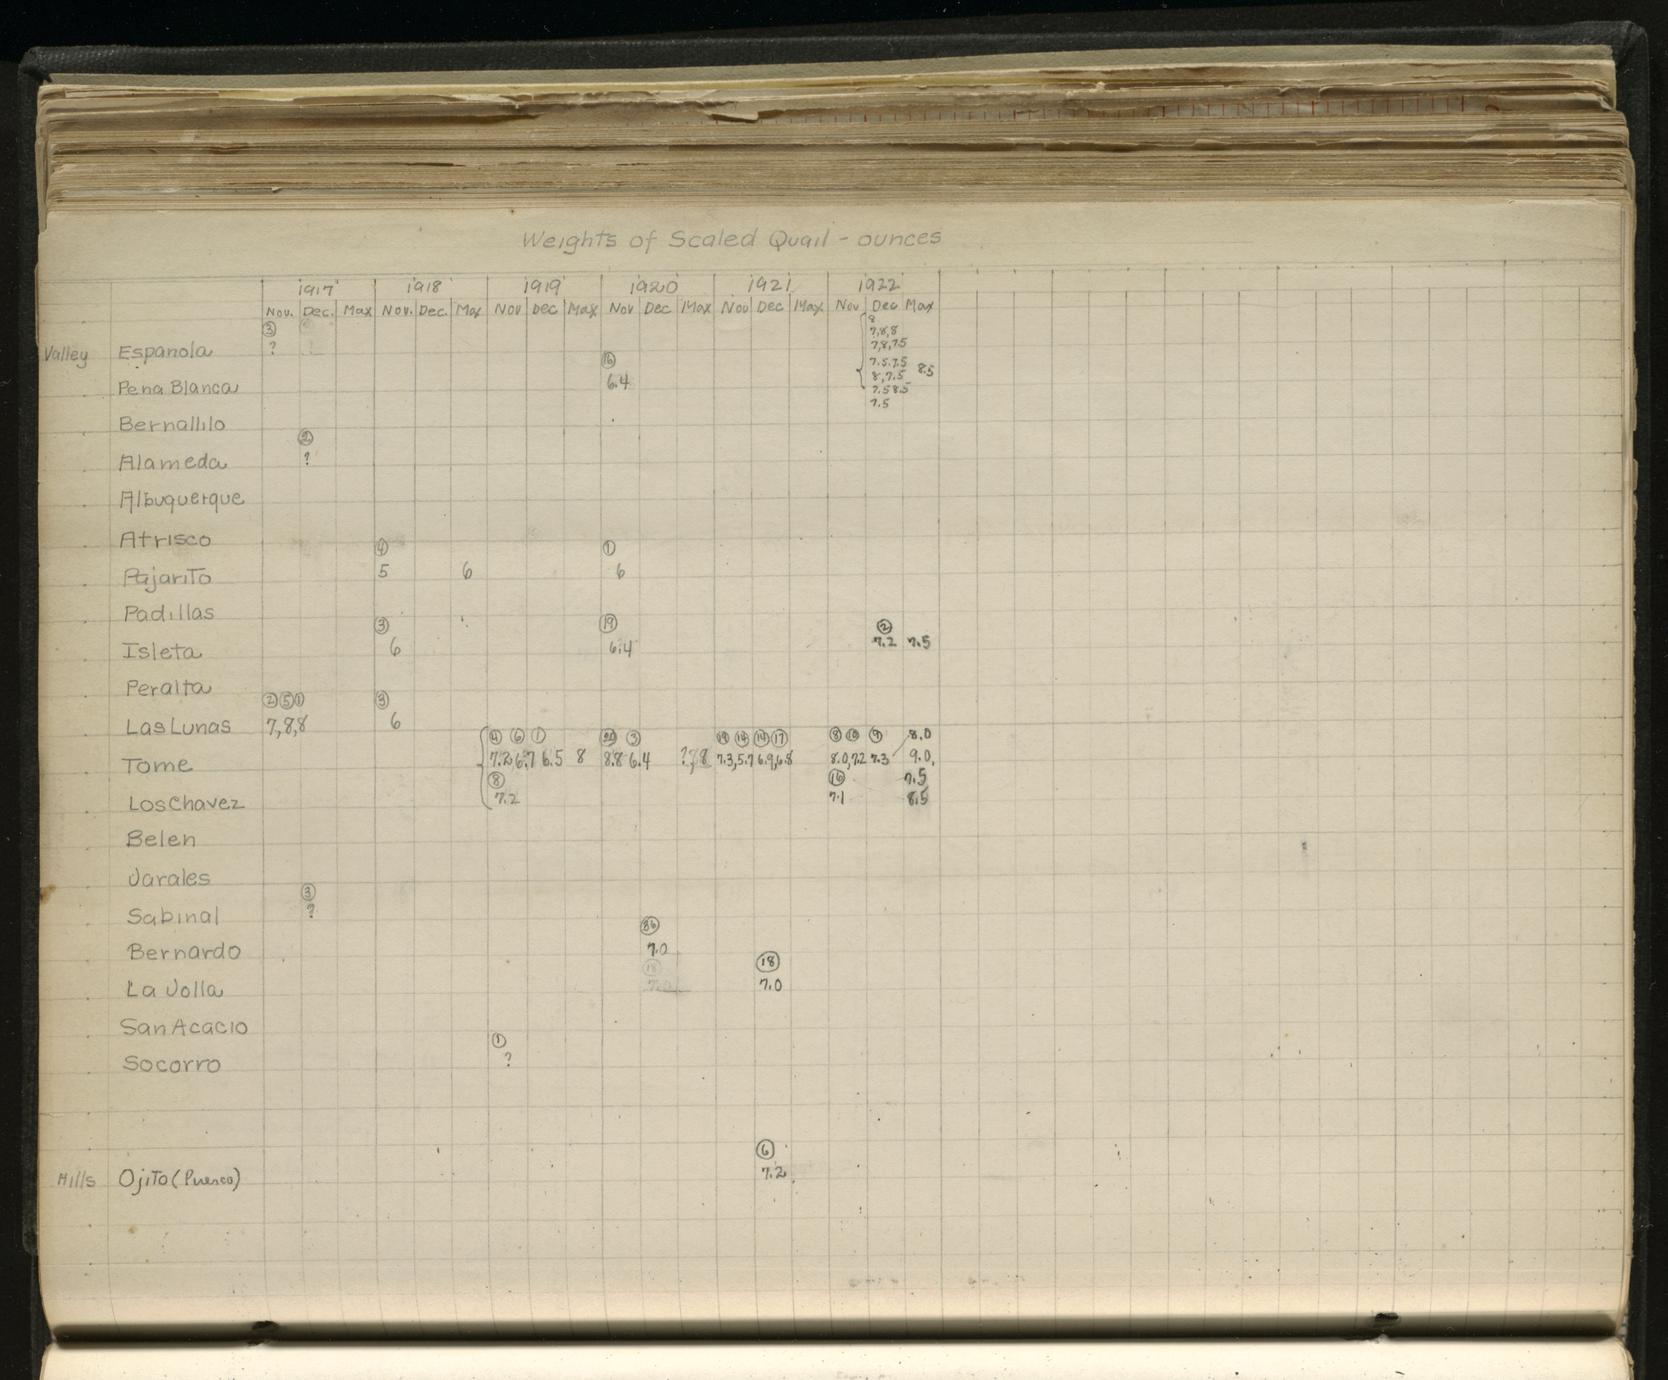 Weights of Scaled Quail - ounces
1917 1918 1919 1920 1921 1922
Nov. Dec. Max Nov. Dec. Max Nov Dec Max Nov Dec Max Nov Dec Max Nov Dec Max
③ 8
7,8,8
Valley Espanola ? 7,8,7.5
⑯ 7.5.7.5
Pena Blanca 6.4 8,7.5 8.5
7.5 8.5
7.5
Bernallilo
②
Alameda ?
Albuquerque
Atrisco
④ ①
Pajarito 5 6 6
Padillas
③ ⑲ ②
Isleta 6 6.4 7.2 7.5
Peralta
② ⑤ ① ③
Las Lunas 7,8,8 6
④ ⑥ ① ③ ⑭ ⑭ ⑰ ⑧ ⑩ ⑨ 8.0
Tome 7.2 6.7 6.5 8 8.8 6.4 ?,8 7.3,5.7 6.9,6.8 8.0,7.2 7.3 9.0,
⑧ ⑯ 7.5
Los Chavez 7.2 7.1 8.5
Belen
Jarales
③
Sabinal ?
㊱
Bernardo 7.0
⑱ ⑱
La Jolla 7.0 7.0
San Acacio
①
Socorro ?
⑥
Hills Ojito (Puerco) 7.2